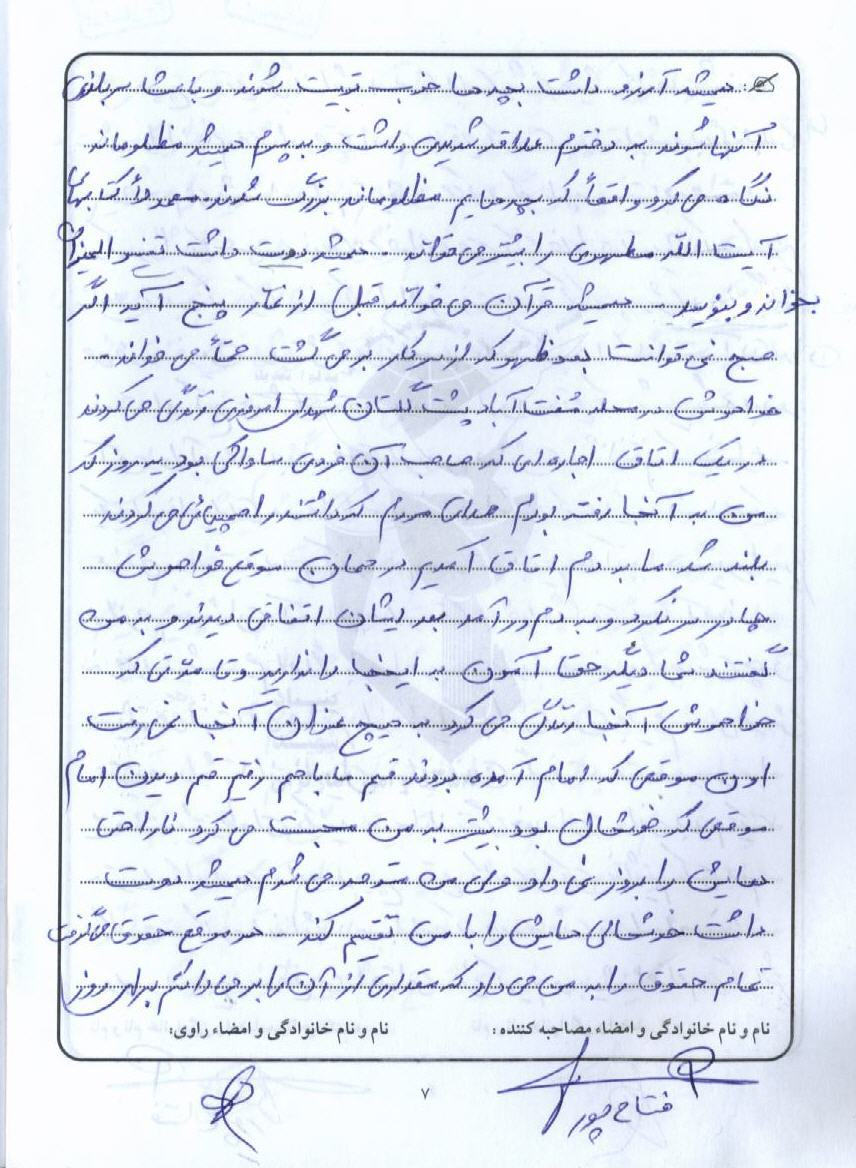 : همیشه آرزو داشت بچه ها خوب تربیت شوند و باعث سربلندی
آنها شوند به دخترم علاقه شدیدی داشت و به پسرم همیشه مظلومانه
نگاه می کرد واقعاً که بچه هایم مظلومانه بزرگ شدند. معمولاً کتابهای
آیت الله مطهری را بیشتر می خواند. همیشه دوست داشت تفسیر المیزان
بخواند و بنویسد. همیشه قرآن می خواند قبل از نماز پنج آیه اگر
صبح نمی توانست بعدظهر که از سر کار بر می گشت حتماً می خواند.
خواهرش در محله صفت آباد پشت گلستان شهدای امروزی زندگی می کردند
در یک اتاق اجاره ای که صاحب آن فردی ساواکی بود یه روز که
من به آنجا رفته بودم صدای مردم که داشتند راهپیمائی می کردند
بلند شد ما به دم اتاق آمدیم در همان موقع خواهرش
چادر سر نکرد و به دم در آمد بعد ایشان اتفاقی دیدند و به من
گفتند شما دیگر حق آمدن به اینجا را ندارید و تا مدتی که
خواهرش آنجا زندگی می کرد به هیچ عنوان آنجا نمی رفت
اون موقعی که امام آمده بودند قم ما با هم رفتیم قم دیدن امام
موقعی که خوشحال بود بیشتر به من محبت می کرد ناراحتی
هایش را بروز نمی داد ولی من متوجه می شدم همیشه دوست
داشت خوشحالی هایش را با من تقسیم کند. هر موقع حقوق می گرفت
تمام حقوق را به من می داد که مقداری از آن را بر می داشتم برای روز
نام و نام خانوادگی و امضاء مصاحبه کننده : نام و نام خانوادگی و امضاء راوی:
فتاح پور
۷